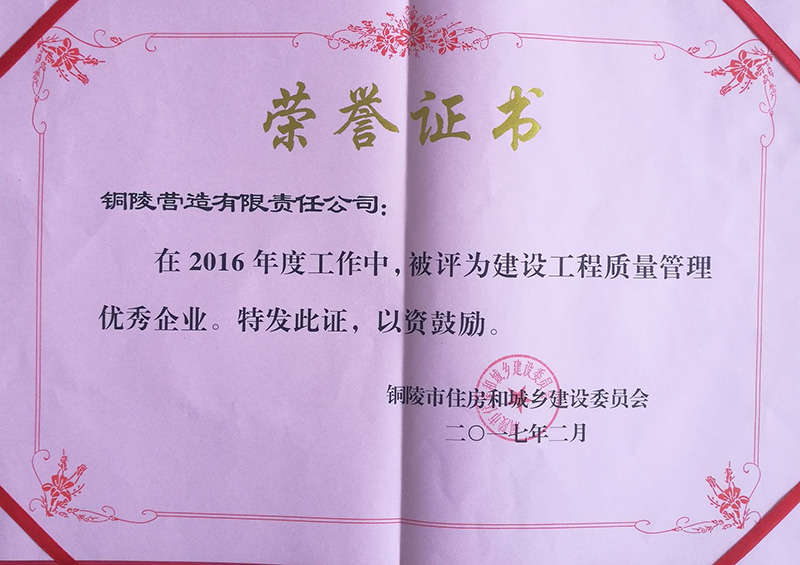 荣誉证书
铜陵营造有限责任公司：
在 2016 年度工作中，被评为建设工程质量管理
优秀企业。特发此证，以资鼓励。
铜陵市住房和城乡建设委员会
二〇一七年二月